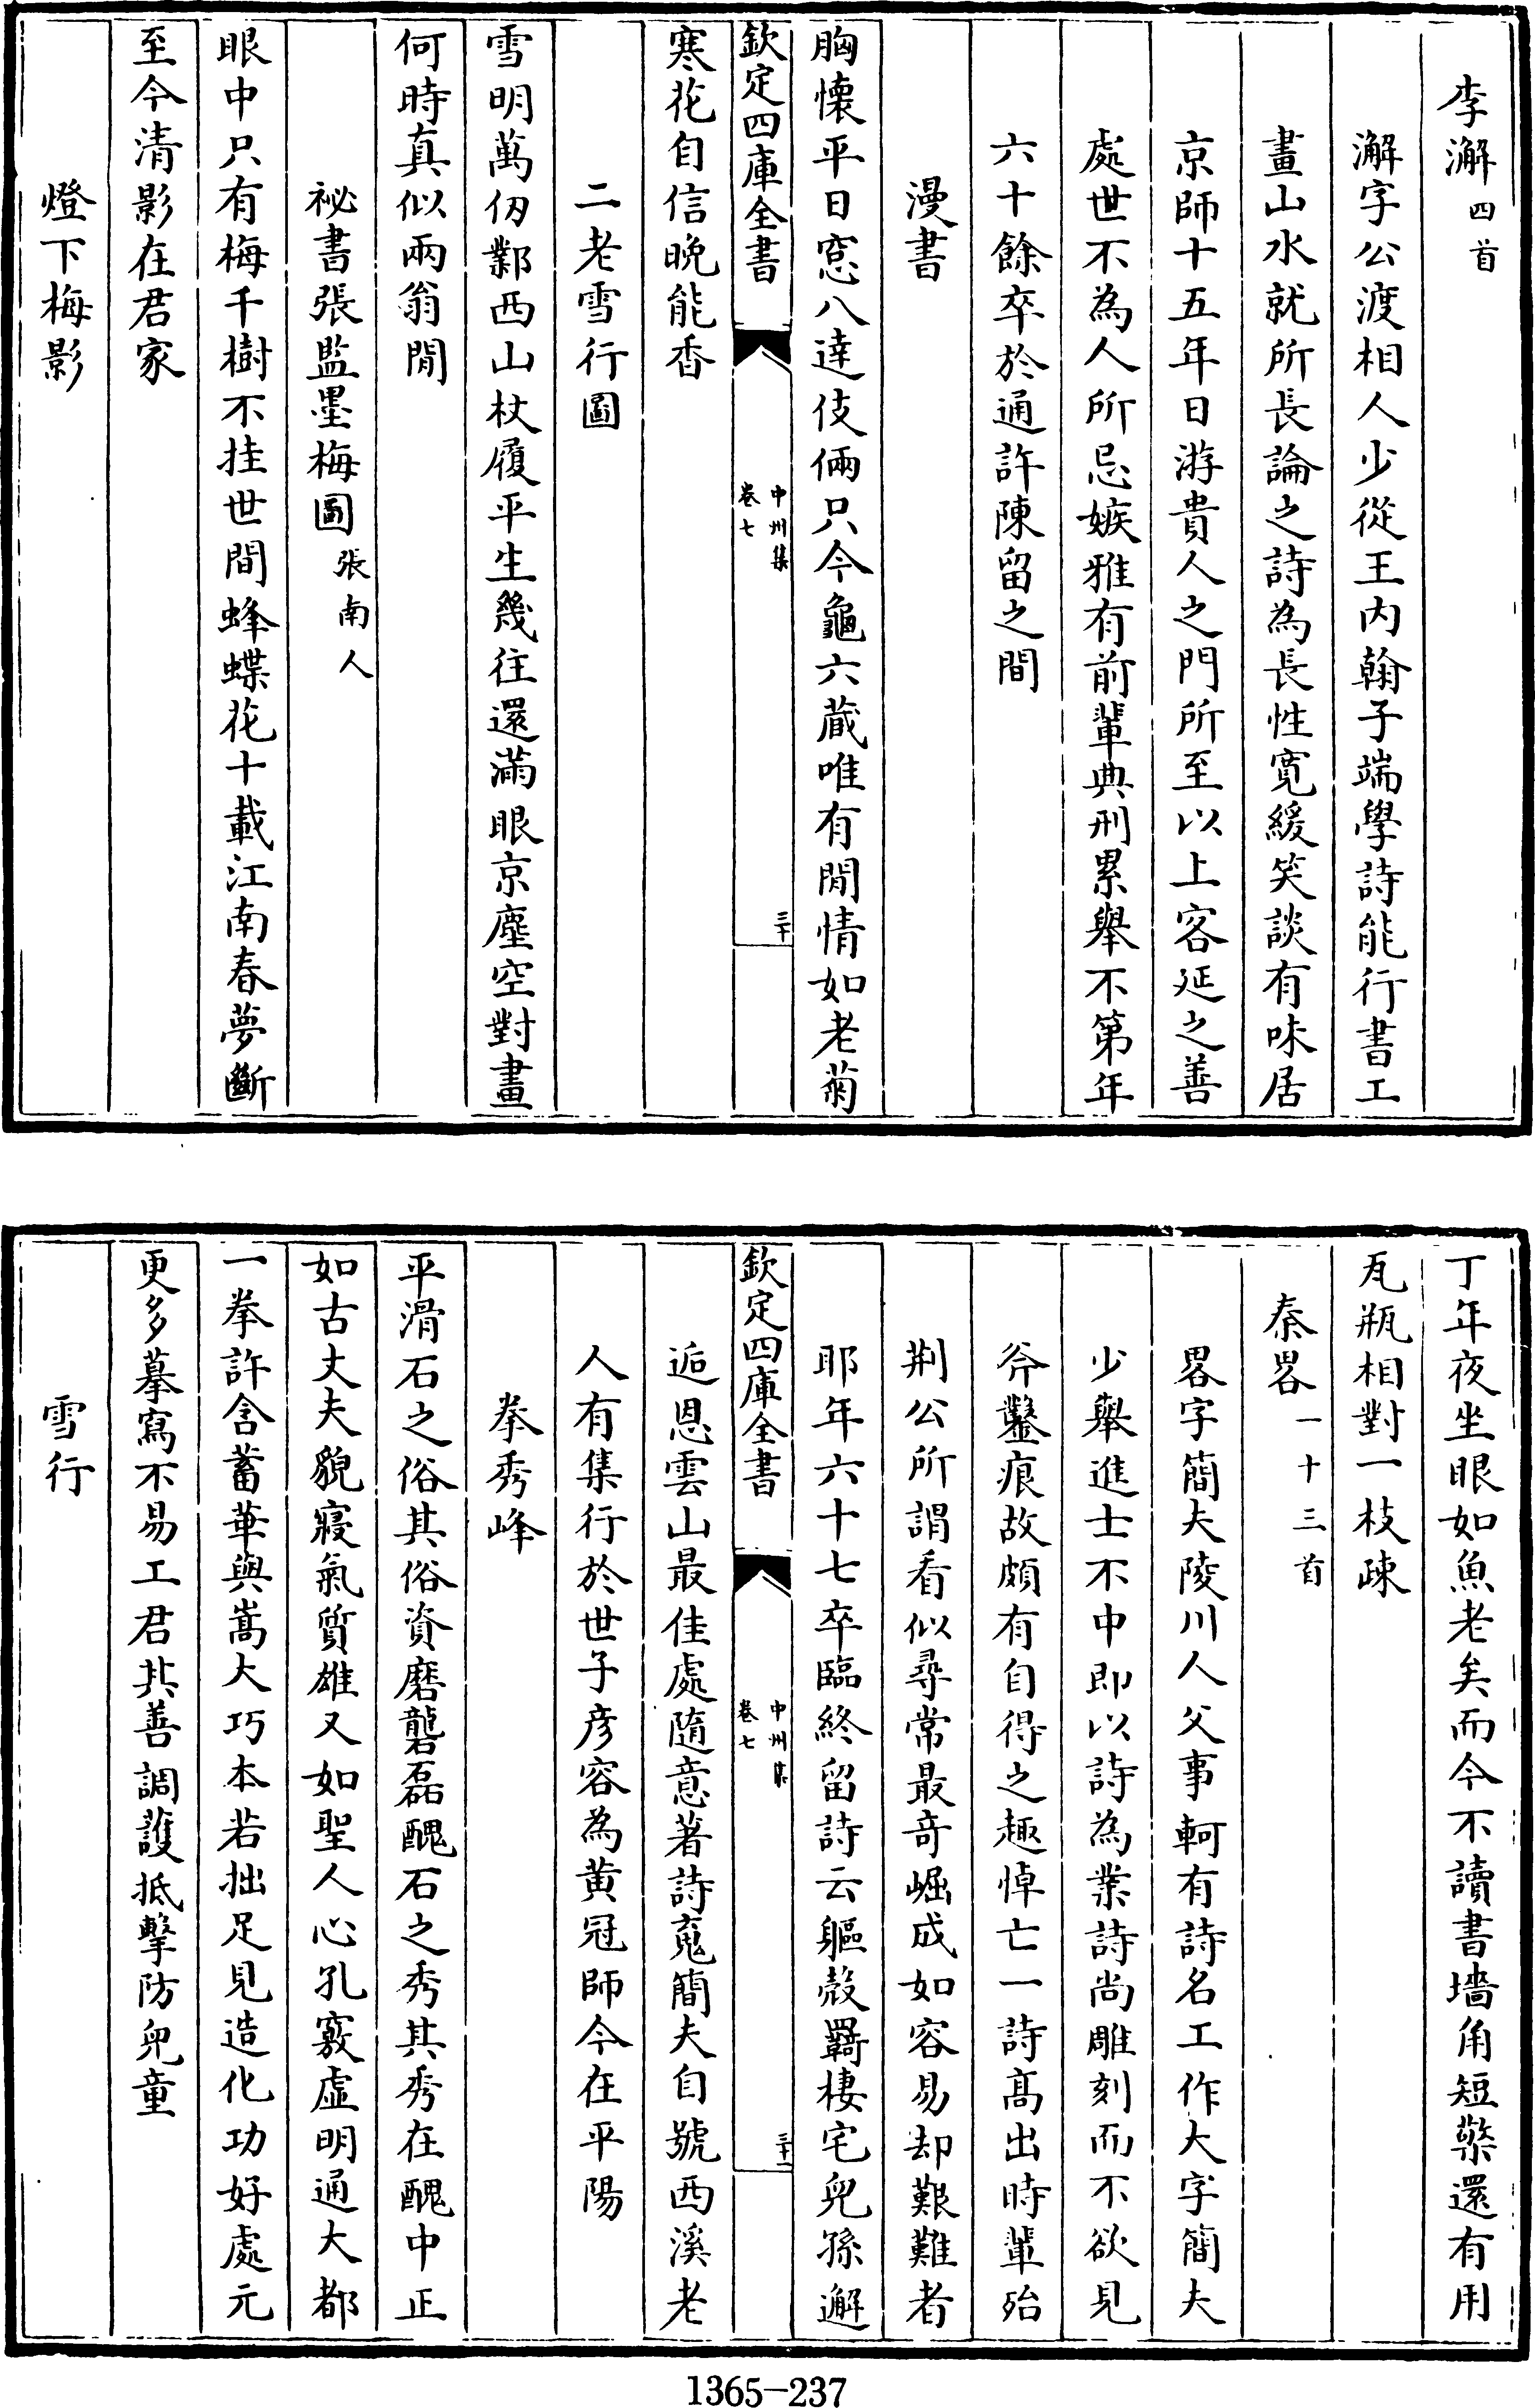 李澥四首
澥字公渡相人少從王內翰子端學詩能行書工
畫山水就所長論之詩為長性寛緩笑談有味居
京師十五年日游貴人之門所至以上客延之善
處世不為人所忌嫉雅有前輩典刑累舉不第年
六十餘卒於通許陳留之間
漫書
胸懐平日窓八達伎倆只今龜六藏唯有閒情如老菊
欽定四庫全書
中州集
卷七
三十
寒花自信晩能香
二老雪行圖
雪明萬仞鄴西山杖履平生幾往還滿眼京塵空對畫
何時真似兩翁閒
祕書張監墨梅圖張南人
眼中只有梅千樹不挂世間蜂蝶花十載江南春夢斷
至今清影在君家
燈下梅影
丁年夜坐眼如魚老矣而今不讀書墻角短檠還有用
瓦瓶相對一枝疎
秦畧一十三首
畧字簡夫陵川人父事軻有詩名工作大字簡夫
少舉進士不中即以詩為業詩尚雕刻而不欲見
斧鑿痕故頗有自得之趣悼亡一詩髙出時輩殆
荆公所謂看似尋常最竒崛成如容易却艱難者
耶年六十七卒臨終留詩云軀殻羇棲宅兒孫邂
欽定四庫全書
中州集
卷七
三十一
逅恩雲山最佳處隨意著詩䰟簡夫自號西溪老
人有集行於世子彦容為黄冠師今在平陽
拳秀峰
平滑石之俗其俗資磨礱磊醜石之秀其秀在醜中正
如古丈夫貌寢氣質雄又如聖人心孔竅虛明通大都
一拳許含蓄華與嵩大巧本若拙足見造化功好處元
更多摹寫不易工君其善調護抵擊防兒童
雪行
1365-237